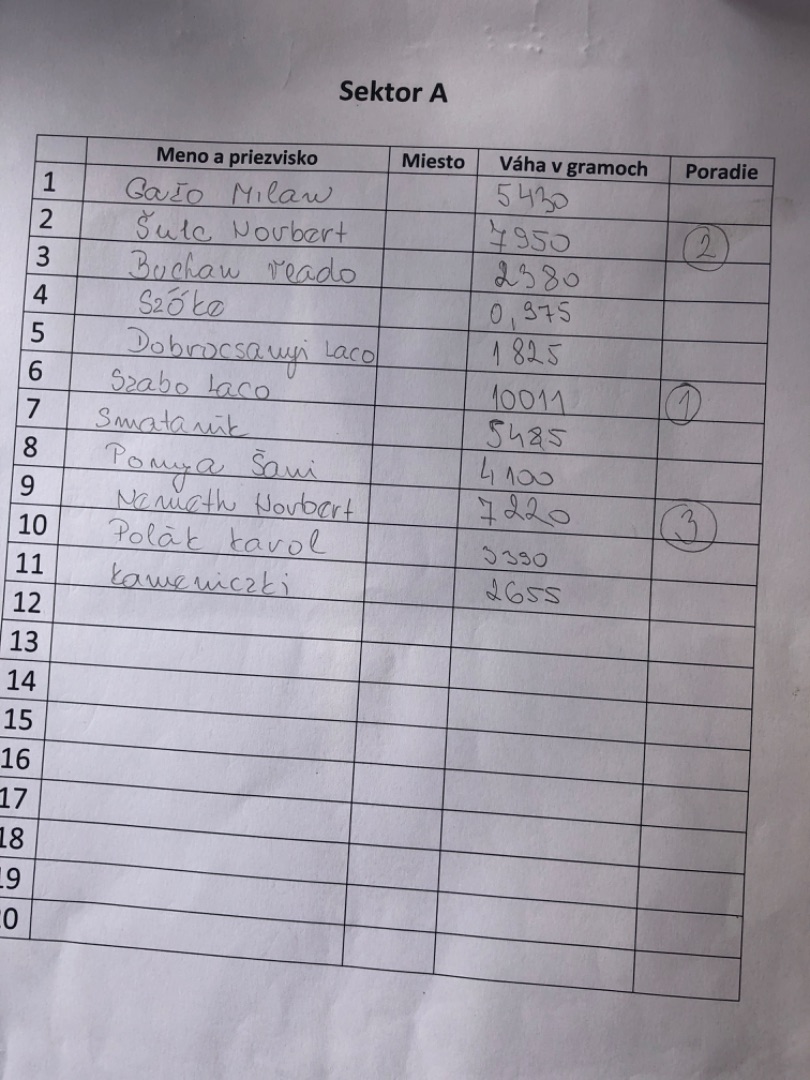 Sektor A
Meno a priezvisko Miesto Váha v gramoch Poradie
1 Gažo Milan 5430
2 Šulc Norbert 7950 2
3 Buchan 2380
4 Szőke 0,975
5 Dobrocsanyi Laco 1825
6 Szabo Laco 10011 1
7 Smatanik 5485
8 Pomya Šani 4100
9 Nemeth Norbert 7220 3
10 Polák Karol 3390
11 Kameniczki 2655
12
13
14
15
16
17
18
19
20